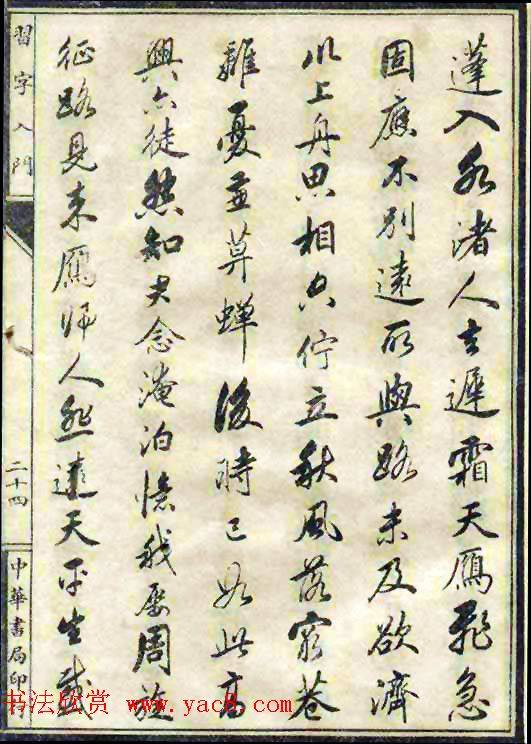 習字入門
二十四
中華書局印行
蓬入水渚人去遲霜天鴈飛急
固應不別遠所與路未及欲濟
川上舟思相空佇立秋風落窮巷
離憂兼暮蟬後時已如此高
興亦徒然知君念淹泊憶我屢周旋
征路見來鴈歸人悲遠天平生感
书法欣赏 www.yac8.com